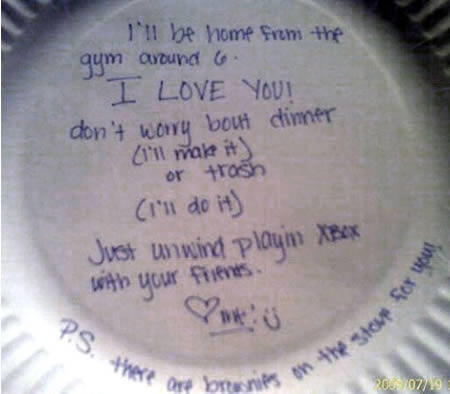 I'll be home from the
gym around 6.
I LOVE YOU!
don't worry bout dinner
(I'll make it)
or trash
(I'll do it)
Just unwind playin XBOX
with your friends.
P.S. there are brownies on the stove for you!
2009/07/19